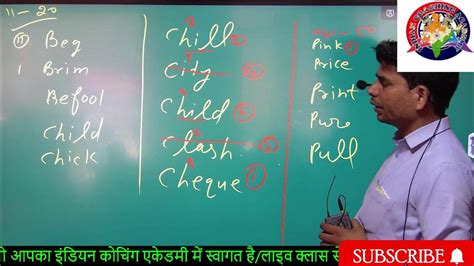 11-20
11 Beg
1 Brim
Befool
Child
Chick
Chill
City
Child
Clash.
Cheque
Pink
Price
Print
Pure
Pull
INDIAN COACHING
ी आपका इंडियन कोचिंग एकेडमी में स्वागत है/लाइव क्लास
SUBSCRIBE